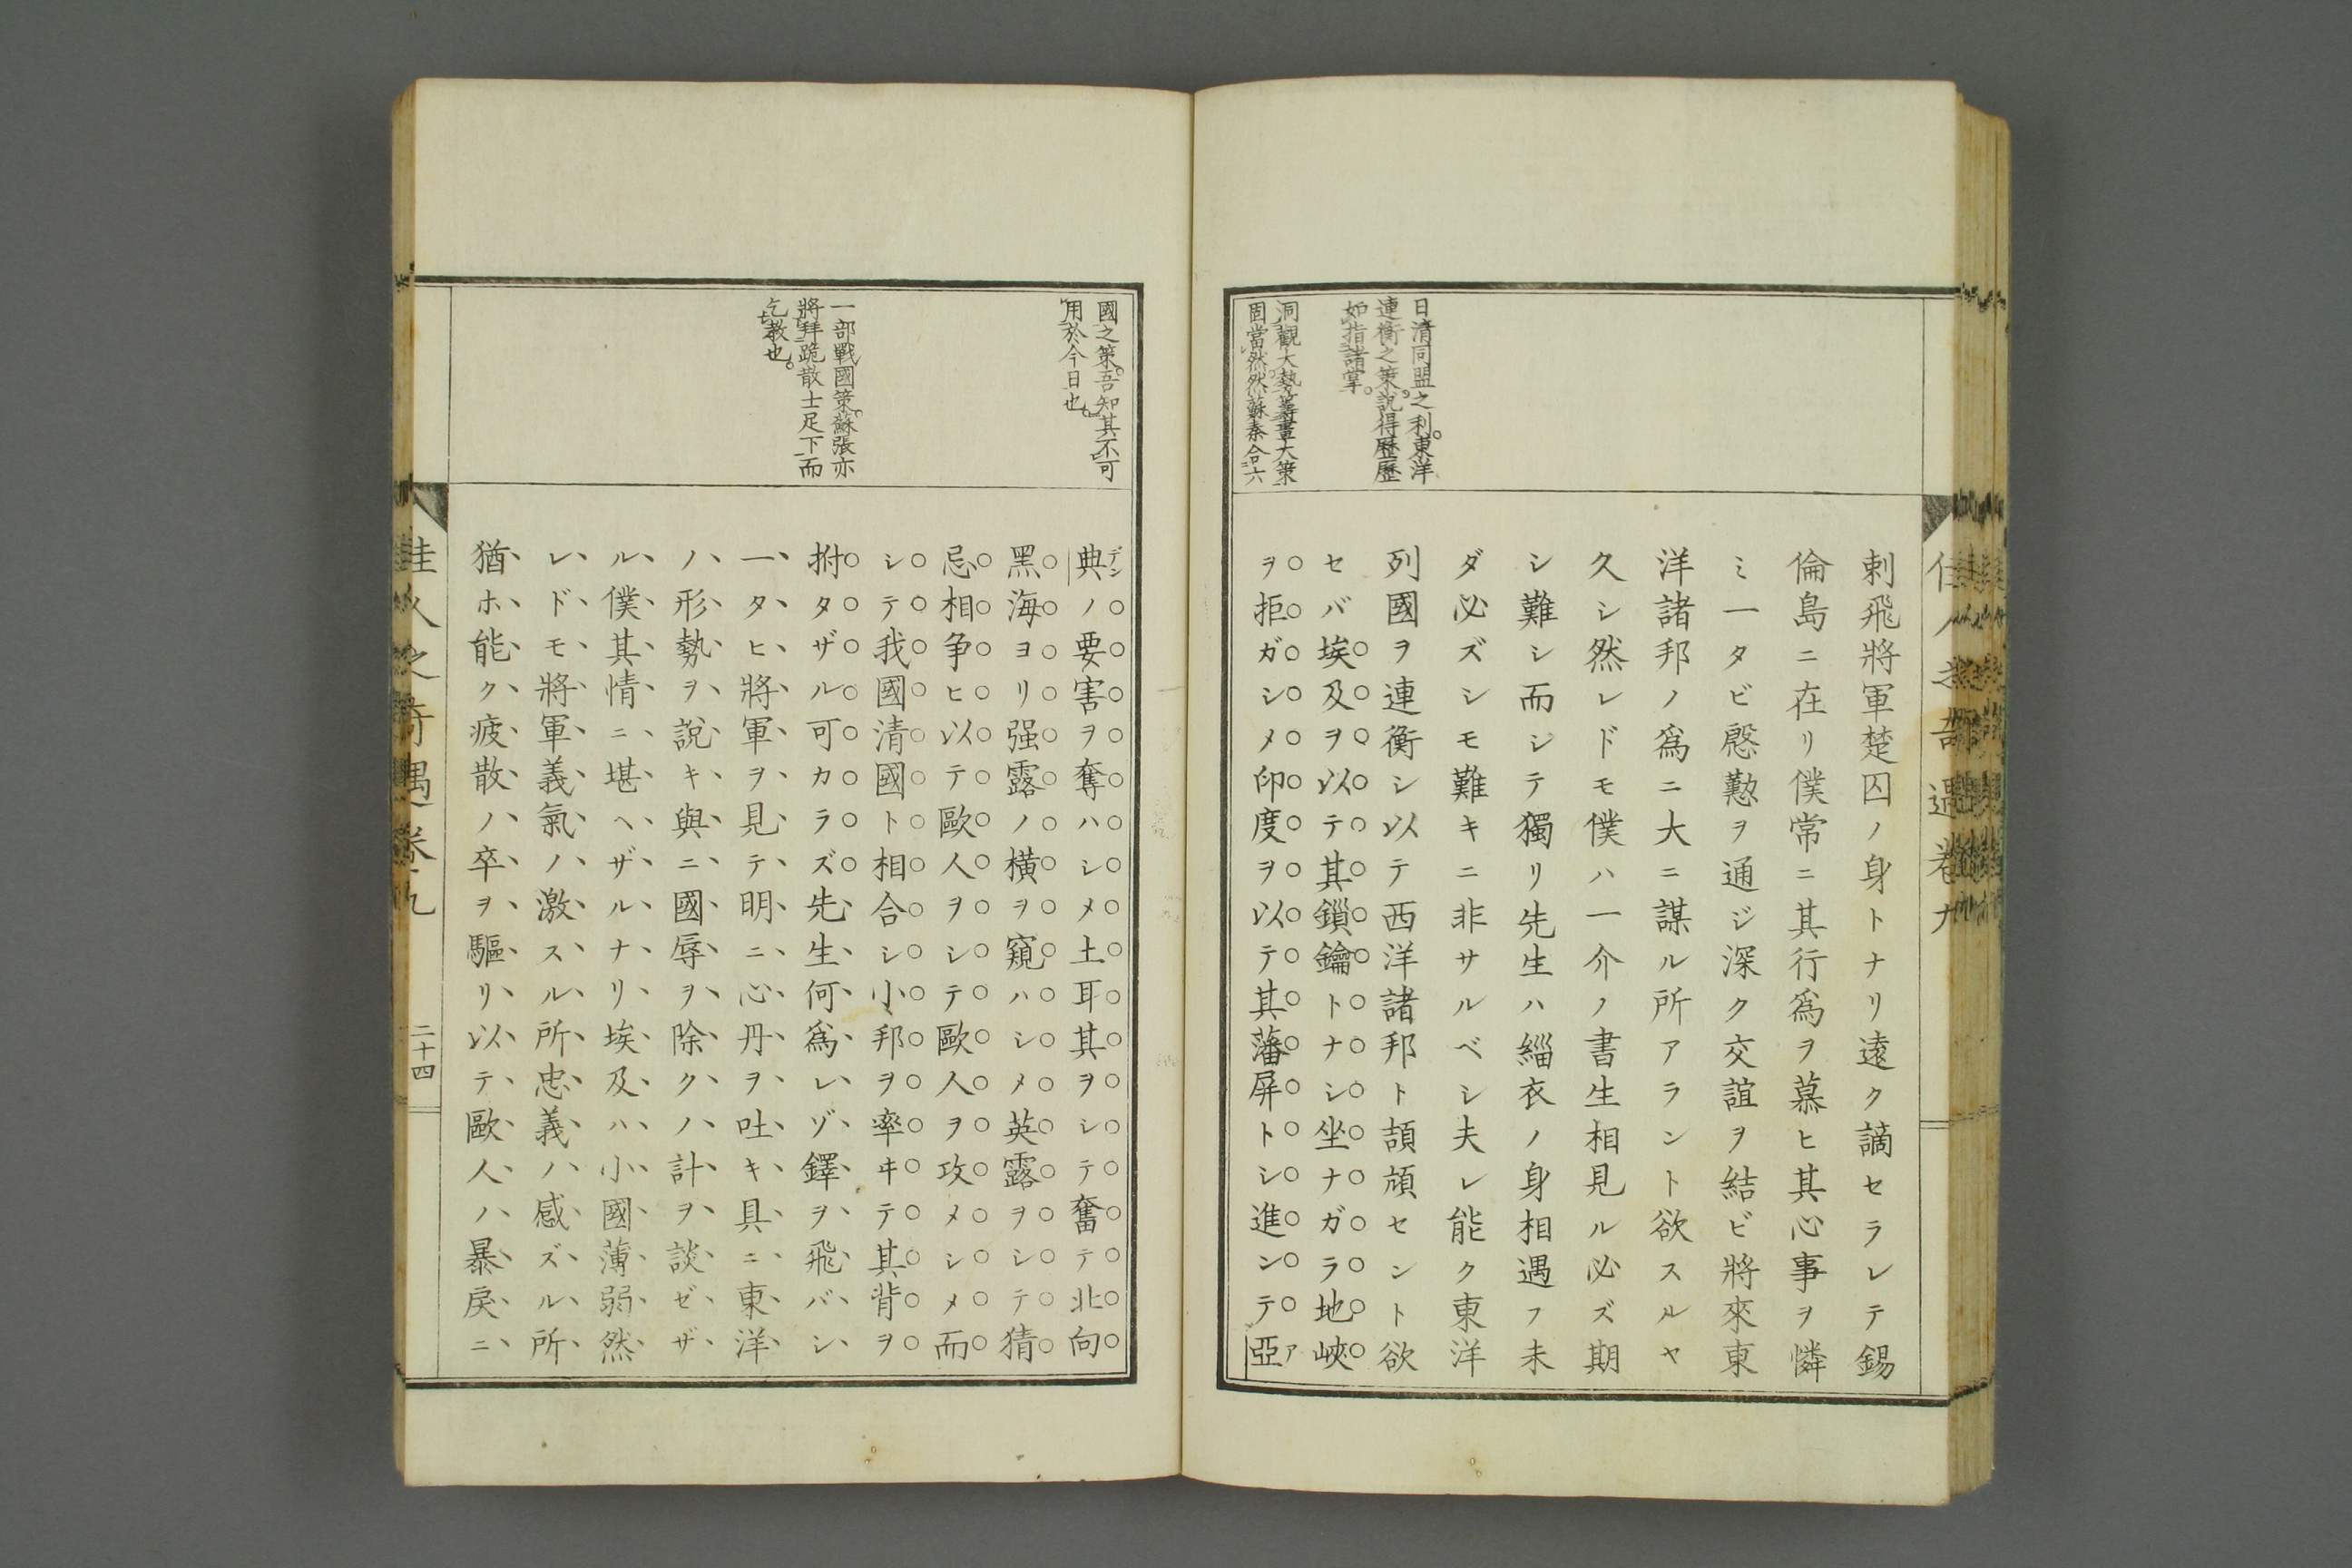 佳人之奇遇卷九
日清同盟之利。東洋
連衡之策。說得歷歷
如指諸掌。
洞觀大勢籌畫大策
固當然。然蘇秦合六
剌飛將軍楚囚ノ身トナリ遠ク謫セラレテ錫
倫島ニ在リ僕常ニ其行爲ヲ慕ヒ其心事ヲ憐
ミ一タビ慇懃ヲ通ジ深ク交誼ヲ結ビ將來東
洋諸邦ノ爲ニ大ニ謀ル所アラント欲スルヤ
久シ然レドモ僕ハ一介ノ書生相見ル必ズ期
シ難シ而シテ獨リ先生ハ緇衣ノ身相遇フ未
ダ必ズシモ難キニ非サルベシ夫レ能ク東洋
列國ヲ連衡シ以テ西洋諸邦ト頡頏セント欲
セバ埃及ヲ以テ其鎖鑰トナシ坐ナガラ地峽
ヲ拒ガシメ印度ヲ以テ其藩屏トシ進ンテ亞
國之策。吾知其不可
用於今日也。
一部戰國策。蘇張亦
將拜跪散士足下而
乞教也。
典ノ要害ヲ奪ハシメ土耳其ヲシテ奮テ北向
黑海ヨリ强露ノ橫ヲ窺ハシメ英露ヲシテ猜
忌相爭ヒ以テ歐人ヲシテ歐人ヲ攻メシメ而
シテ我國清國ト相合シ小邦ヲ率ヰテ其背ヲ
拊タザル可カラズ先生何爲レゾ鐸ヲ飛バシ
一タヒ將軍ヲ見テ明ニ心丹ヲ吐キ具ニ東洋
ノ形勢ヲ說キ與ニ國辱ヲ除クノ計ヲ談ゼザ
ル僕其情ニ堪ヘザルナリ埃及ハ小國薄弱然
レドモ將軍義氣ノ激スル所忠義ノ感ズル所
猶ホ能ク疲散ノ卒ヲ驅リ以テ歐人ノ暴戾ニ
佳人之奇遇卷九
二十四